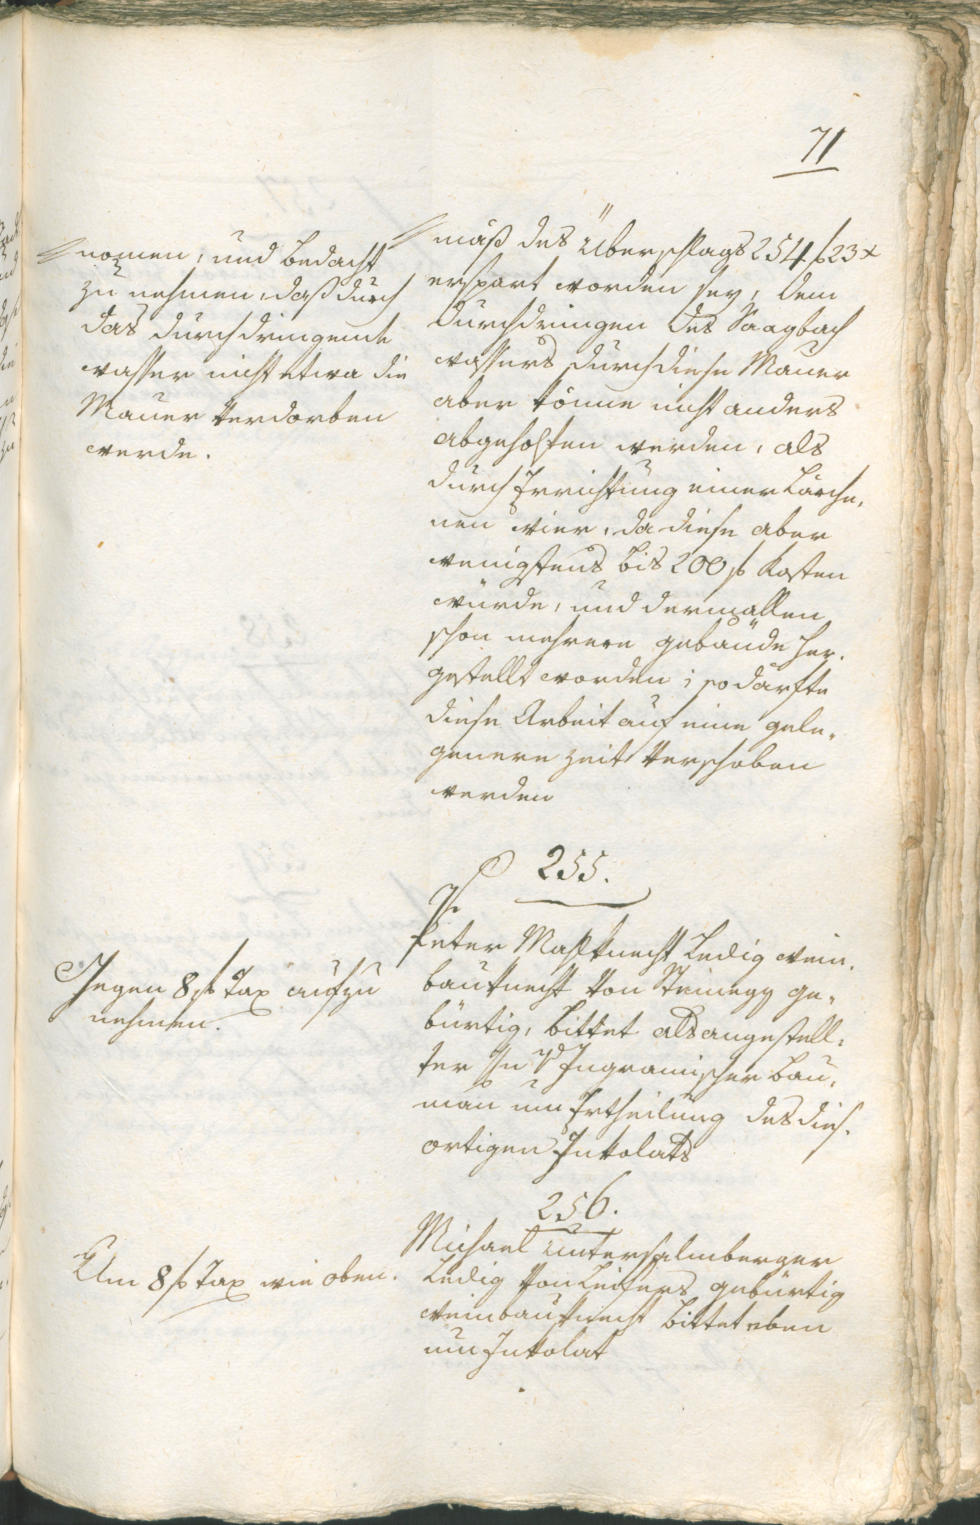 71
nomen, und bedacht
zu nehmen, daß durch
das durchdringente
wasser nicht etwa die
Mauer verdorben
werde.
mäß des Überschlags 254 f 23 x
erspart worden sey, dem
Durchdringen des Saagbach
wassers durch diese Mauer
aber könne nicht anders
abgeholfen werden, als
durch Errichtung einer Lärche,
nen wier, da diese aber
wenigstens bis 200 f kosten
würde, und dermallen
schon mehrere gebäude her,
gestellt worden; so därfte
diese Arbeit auf eine gele,
genere zeit verschoben
werden
255.
Gegen 8 f Tax aufzu
nehmen.
Peter Maßknecht Ledig wein,
bauknecht von Steinegg ge,
bürtig, bittet als angestell,
ter Ingramischer bau,
man um Ertheilung des dies,
ortigen Inkolats
256.
Um 8 f Tax wie oben.
Michael Unterhalmberger
Ledig von Leifers gebürtig
weinbauknecht bittet eben
um Inkolat